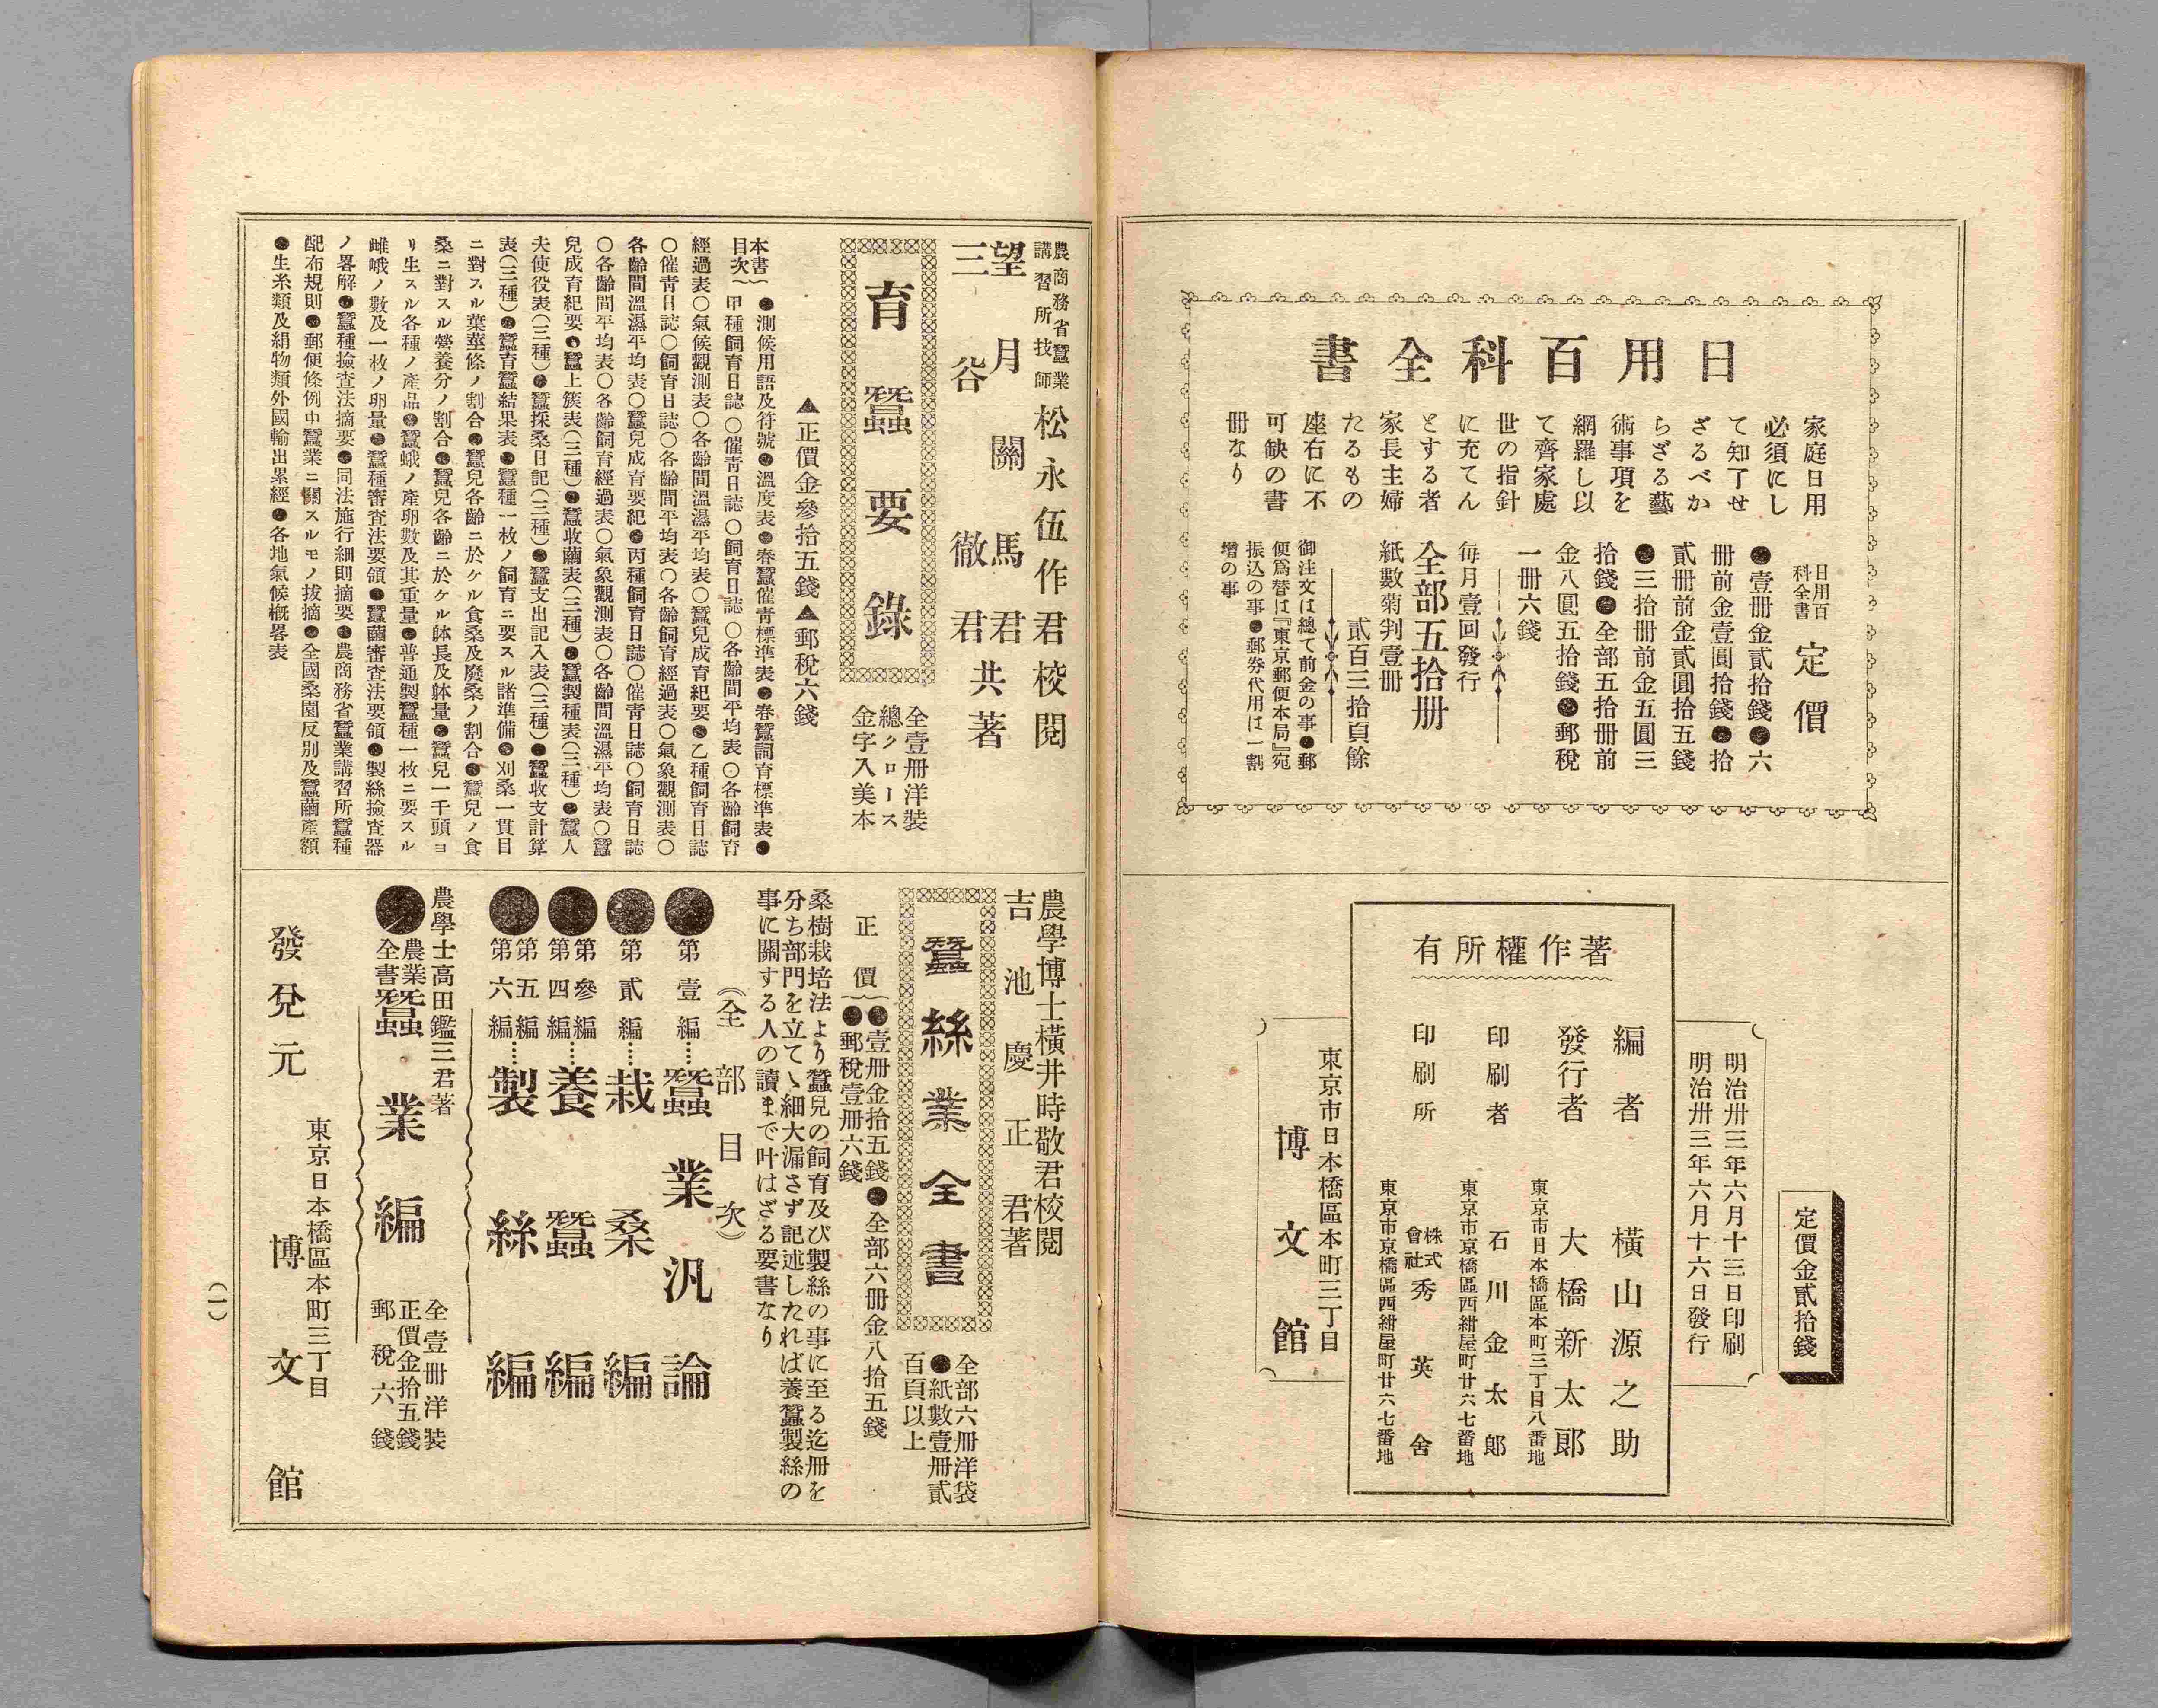 日用百科全書
家庭日用
必須にし
て知了せ
ざるべか
らざる藝
術事項を
網羅し以
て齊家處
世の指針
に充てん
とする者
家長主婦
たるもの
座右に不
可缺の書
冊なり
日用百
科全書
定價
●壹冊金貳拾錢●六
冊前金壹圓拾錢●拾
貳冊前金貳圓拾五錢
●三拾冊前金五圓三
拾錢●全部五拾冊前
金八圓五拾錢●郵稅
一冊六錢
每月壹回發行
全部五拾冊
紙數菊判壹冊
貳百三拾頁餘
御注文は總て前金の事●郵
便爲替は『東京郵便本局』宛
振込の事●郵券代用は一割
增の事
定價金貳拾錢
明治卅三年六月十三日印刷
明治卅三年六月十六日發行
著作權所有
編者 橫山源之助
東京市日本橋區本町三丁目八番地
發行者 大橋新太郎
東京市京橋區西紺屋町廿六七番地
印刷者 石川金太郎
東京市京橋區西紺屋町廿六七番地
印刷所 株式會社 秀英舍
東京市日本橋區本町三丁目
博文館
農商務省蠶業
講習所技師
松永伍作君校閱
望月關馬君
三谷徹君
共著
育蠶要錄
全壹冊洋裝
總クロース
金字入美本
▲正價金參拾五錢▲郵稅六錢
本書
目次
●測候用語及符號●溫度表●春蠶催靑標準表●春蠶飼育標準表●
甲種飼育日誌○催靑日誌○飼育日誌○各齡間平均表○各齡飼育
經過表○氣候觀測表○各齡間溫濕平均表○蠶兒成育紀要●乙種飼育日誌
○催靑日誌○飼育日誌○各齡間平均表○各齡飼育經過表○氣象觀測表○
各齡間溫濕平均表○蠶兒成育要紀●丙種飼育日誌○催靑日誌○飼育日誌
○各齡間平均表○各齡飼育經過表○氣象觀測表○各齡間溫濕平均表○蠶
兒成育紀要●蠶上簇表(三種)●蠶收繭表(三種)●蠶製種表(三種)●蠶人
夫使役表(三種)●蠶採桑日記(三種)●蠶支出記入表(三種)●蠶收支計算
表(三種)●蠶育蠶結果表●蠶種一枚ノ飼育ニ要スル諸準備●刈桑一貫目
ニ對スル葉莖條ノ割合●蠶兒各齡ニ於ケル食桑及廢桑ノ割合●蠶兒ノ食
桑ニ對スル營養分ノ割合●蠶兒各齡ニ於ケル躰長及躰量●蠶兒一千頭ヨ
リ生スル各種ノ產品●蠶蛾ノ產卵數及其重量●普通製蠶種一枚ニ要スル
雌蛾ノ數及一枚ノ卵量●蠶種審査法要領●蠶繭審査法要領●製絲撿査器
ノ畧解●蠶種撿査法摘要●同法施行細則摘要●農商務省蠶業講習所蠶種
配布規則●郵便條例中蠶業ニ關スルモノ拔摘●全國桑園反別及蠶繭產額
●生糸類及絹物類外國輸出累經●各地氣候槪畧表
農學博士橫井時敬君校閱
吉池慶正君著
蠶絲業全書
全部六冊洋袋
●紙數壹冊貳
百頁以上
正價
●壹冊金拾五錢●全部六冊金八拾五錢
●郵稅壹冊六錢
桑樹栽培法より蠶兒の飼育及び製絲の事に至る迄冊を
分ち部門を立てゝ細大漏さず記述したれば養蠶製絲の
事に關する人の讀まで叶はざる要書なり
(全部目次)
●第壹編……蠶業汎論
●第貳編……栽桑編
●第參編第四編……養蠶編
●第五編第六編……製絲編
農學士高田鑑三君著
●農業全書 蠶業編
全壹冊洋裝
正價金拾五錢
郵稅六錢
發兌元
東京日本橋區本町三丁目
博文館
(一)